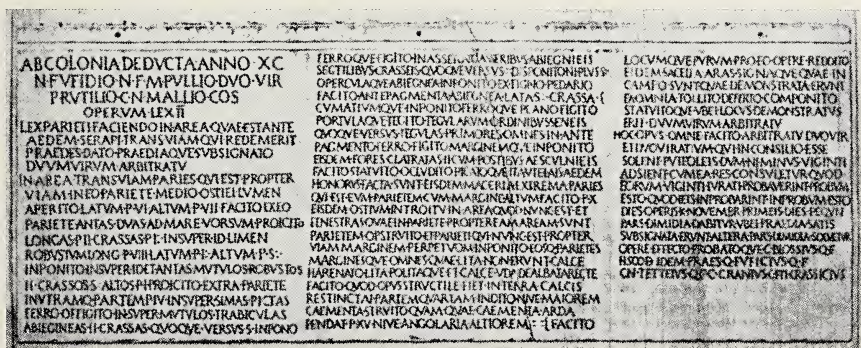 AB COLONIA DEDVCTA ANNO · XC
N · FVFIDIO · N · F · M · PVLLIO · DVO · VIR
P · RVTILIO · CN · MALLIO · COS
OPERVM · LEX · II
LEX PARIETI FACIENDO IN AREA QVAE EST ANTE
AEDEM · SERAPI · TRANS VIAM · QVI REDEMERIT
PRAEDES · DATO · PRAEDIAQVE SVBSIGNATO
DVVMVIRVM · ARBITRATV
IN AREA TRANS VIAM PARIES QVI EST PROPTER
VIAM · IN EO PARIETE · MEDIO · OSTIEI LVMEN
APERITO · LATVM · P · VI · ALTVM · P · VII · FACITO · EX EO
PARIETE ANTAS · DVAS AD MARE · VORSVM · PROICITO
LONGAS · P · II · CRASSAS · P · I · INSVPER · ID LIMEN
ROBVSTVM · LONG · P · VIII · LATVM · P · I · ALTVM · P · S ·
INPONITO · INSVPER ID ET ANTAS · MVTVLOS · ROBVSTOS
II · CRASSOS · S · ALTOS · P · I · PROICITO · EXTRA PARIETE
IN VTRAMQ · PARTEM P · IV · INSVPER SIMAS · PICTAS
FERRO OFFIGITO INSVPER MVTVLOS TRABICVLAS
ABIEGINEAS · II · CRASSAS · QVOQVE · VERSVS · S · INPONO
FERROQVE FIGITO INASSERATO ASSERIBVS ABIEGNIEIS
SECTILIBVS CRASSEIS QVOQVE VERSVS · DISPONITO NI PLVS S
OPERCVLAQVE ABIEGNEA INPONITO EX TIGNO PEDARIO
FACITO ANTEPAGMENTA ABIEGNEA LATAS · CRASSA ·
CVMATIVMQVE INPONITO FERROQVE PLANO FIGITO
PORTVLAQVE TEGITO TEGVLARVM ORDINIBVS SENEIS
QVOQVE VERSVS TEGVLAS PRIMORES OMNES IN ANTE
PAGMENTO FERRO FIGITO MARGINEMQVE INPONITO
EISDEM FORES CLATRATAS II CVM POSTIBVS AESCVLNIEIS
FACITO STATVITO OCCLVDITO PICATOQVE ITA VTEI AD AEDEM
HONORVS FACTA SVNT EISDEM MACERIA EXTREMA PARIES
QVI EST EVM PARIETEM CVM MARGINE ALTVM FACITO P X
EISDEM OSTIVM INTROITV IN AREA QVOD NVNC EST ET
FENESTRAS QVAE IN PARIETE PROPTER EAM AREAM SVNT
PARIETEM OPSTRVITO ET PARIETI QVI NVNC EST PROPTER
VIAM MARGINEM PERPETVOM INPONITO EOSQ PARIETES
MARGINESQVE OMNES QVAE LITA NON ERVNT CALCE
HARENATO LITA POLITAQVE ET CALCE VDA DEALBATA RECTE
FACITO QVOD OPVS STRVCTILE FIET IN TERRA CALCIS
RESTINCTAI PARTEM QVARTAM INDITO NIVE MAIOREM
CAEMENTA STRVITO QVAM QVAE CAEMENTA ARDA
PENDAT P XV NIVE ANGOLARIA ALTIOREM FACITO
LOCVMQVE PVRVM PRO EO OPERE REDDITO
EIDEM SACELLA ARAS SIGNAQVE QVAE IN
CAMPO SVNT QVAE DEMONSTRATA ERVNT
EA OMNIA TOLLITO DEFERTO COMPONITO
STATVITOQVE VBEI LOCVS DEMONSTRATVS
ERIT DVVMVIRVM ARBITRATV
HOC OPVS OMNE FACITO ARBITRATV DVOVIR
ETIIOVIRATIVM QVI IN CONSILIO ESSE
SOLENT PVTEOLEIS DVM NI MINVS VIGINTI
ADSIENT CVM EA RES CONSVLETVR QVOD
EORVM VIGINTI IVRATI PROBAVERINT PROBVM
ESTO QVOD IEIS INPROBARINT INPROBVM ESTO
DIES OPERIS K NOVEMBR PRIMEIS DIES PEQVN
PARS DIMIDIA DABITVR VBEI PRAEDIA SATIS
SVBSIGNATA ERVNT ALTERA PARS DIMIDIA SOLVETVR
OPERE EFFECTO PROBATOQVE C BLOSSIVS Q F
HS ∞D IDEM PRAES Q FVFICIVS Q F
CN TETTEIVS Q F C GRANIVS C F TI CRASSICIVS